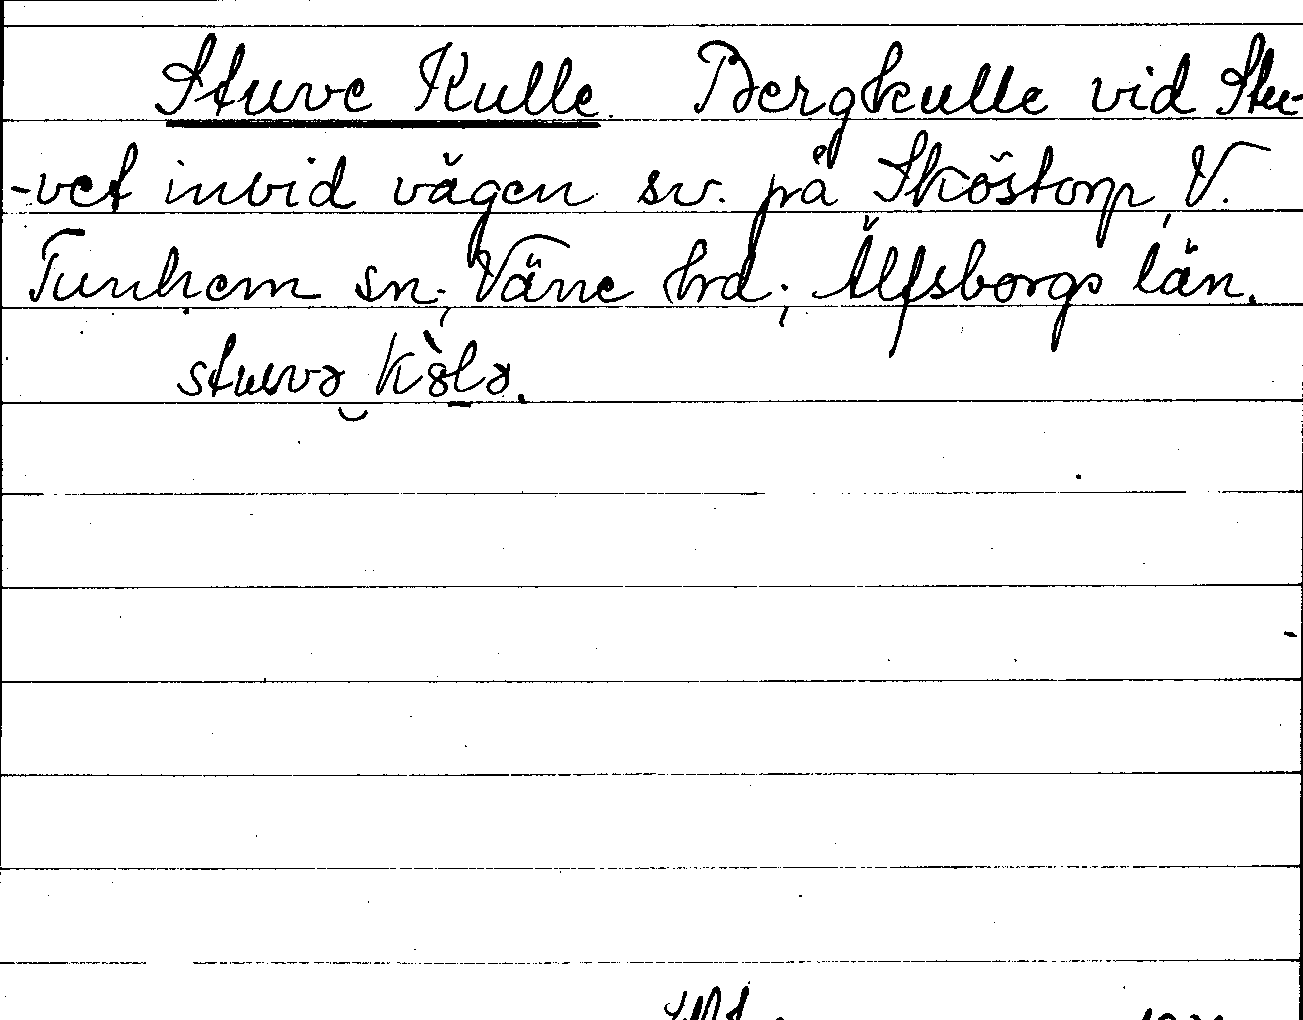 Stuve Kulle. Bergkulle vid Stu-
-vet invid vägen sv. på Sköstorp, V.
Tunhem sn; Väne hrd; Älfsborgs län.